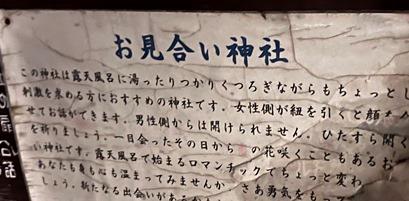 お見合い神社
この神社は露天風呂に湯ったりつかりくつろぎながらもちょっとし
刺激を求める方におすすめの神社です。女性側が紐を引くと顔を
せてお話ができます。男性側からは開けられません。ひたすら開く
を祈りましょう。一目会ったその日から の花咲くこともあるお
い神社です。露天風呂で始まるロマンチックでちょっと変わ
あなたも身も心も温まってみませんか。さあ勇気をもっ
しょう。新たなる出会いがあ